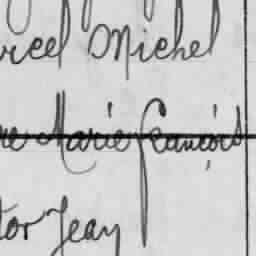 rcel Michel
re Marie François
tor Jean